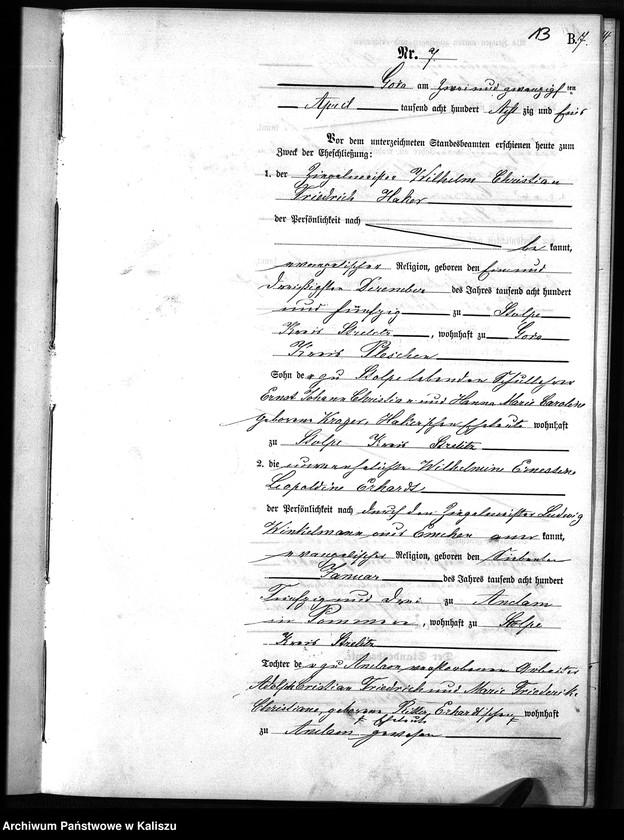 13 B. 7.
Nr. 7
Góra am zwei und zwanzigsten
April tausend acht hundert Acht zig und Eins
Vor dem unterzeichneten Standesbeamten erschienen heute zum
Zweck der Eheschließung:
1. der Ziegelmeister Wilhelm Christian
Friedrich Haker
der Persönlichkeit nach
be kannt,
evangelischer Religion, geboren den Ein und
dreißigsten Dezember des Jahres tausend acht hundert
und fünfzig zu Stolpe
Kreis Strelitz, wohnhaft zu Góra
Kreis Pleschen
Sohn der zu Stolpe lebenden Schullehrer
Ernst Johann Christian und Hanna Marie Caroline
geborene Kroger, Haker'schen Eheleute wohnhaft
zu Stolpe Kreis Strelitz
2. die unverehelichte Wilhelmine Ernestine
Leopoldine Erhardt
der Persönlichkeit nach durch den Ziegelmeister Ludwig
Winkelmann aus Emchen aner kannt,
evangelischer Religion, geboren den Siebenten
Januar des Jahres tausend acht hundert
Fünfzig und drei zu Anclam
in Pommern, wohnhaft zu Stolpe
Kreis Strelitz
Tochter der zu Anclam verstorbenen Arbeiter
Adolph Christian Friedrich und Marie Friederike
Christiane, geborene Erhardt'schen wohnhaft
Eheleute
zu Anclam gewesen
Archiwum Państwowe w Kaliszu